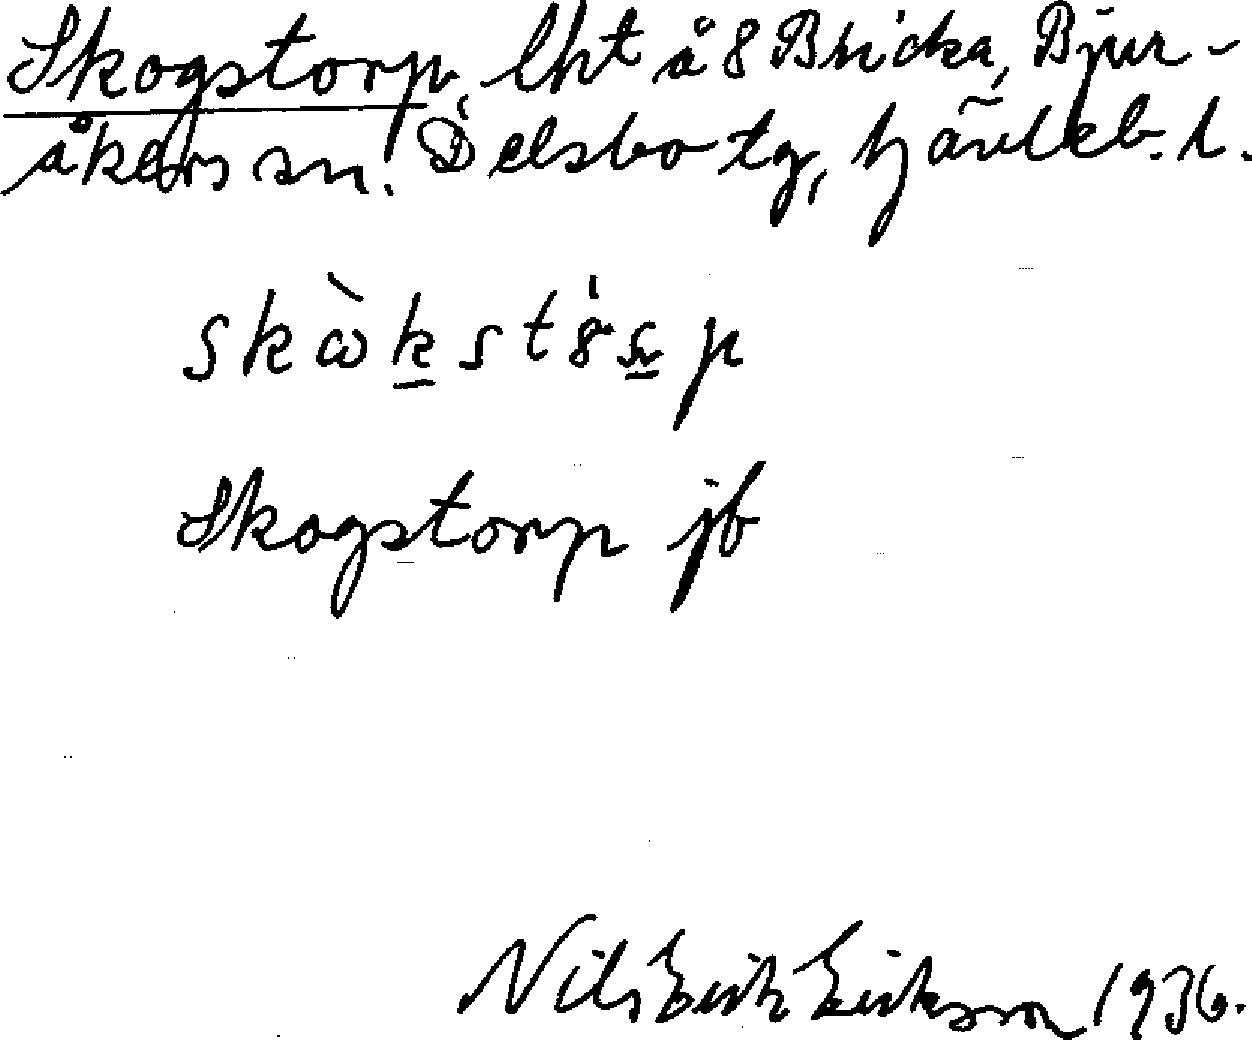 Skogstorp, lht å 8 Bricka, Bjur-
åkers sn. Delsbo tg, Gävleb. l.
skòkstp
Skogstorp jb
Nils Erik Eriksson 1936.